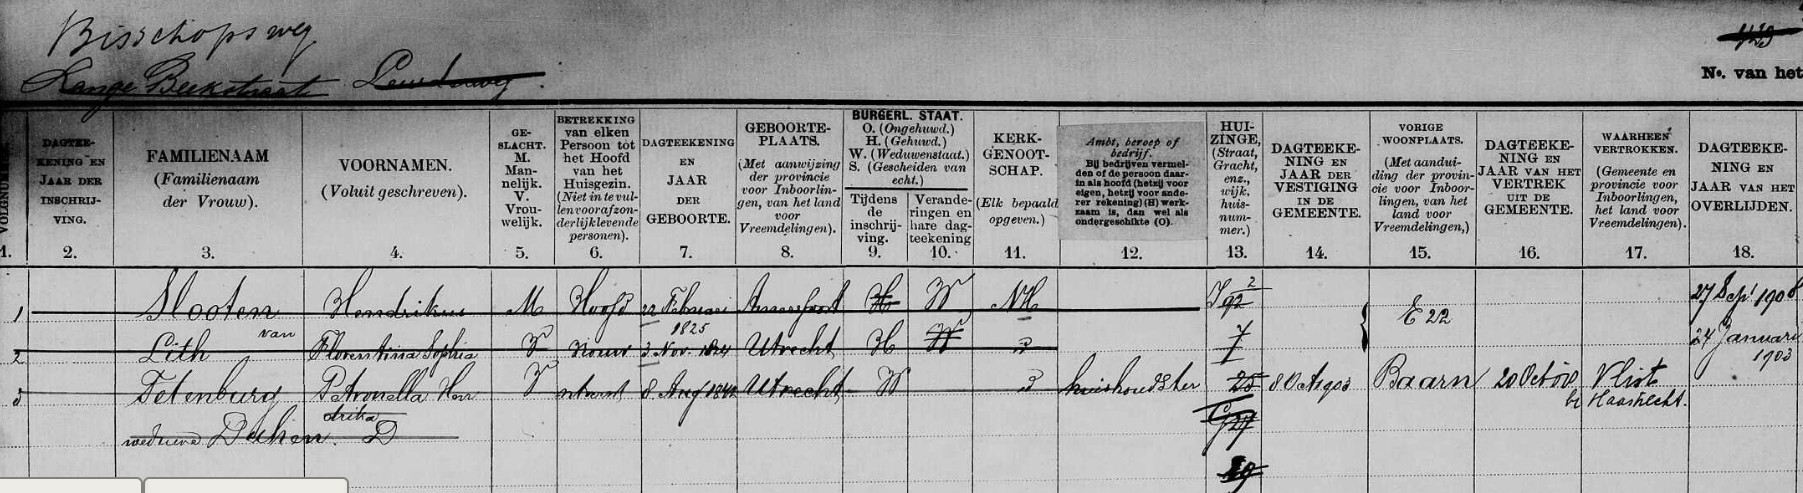 Bisschopsweg
Lange Beekstraat
No. van het
VOLGNUMMER.
1.
DAGTEE-
KENING EN
JAAR DER
INSCHRIJ-
VING.
2.
FAMILIENAAM
(Familienaam
der Vrouw).
3.
VOORNAMEN.
(Voluit geschreven).
4.
GE-
SLACHT.
M.
Man-
nelijk.
V.
Vrou-
welijk.
5.
BETREKKING
van elken
Persoon tot
het Hoofd
van het
Huisgezin.
(Niet in te vul-
len voor afzon-
derlijk levende
personen).
6.
DAGTEEKENING
EN
JAAR
DER
GEBOORTE.
7.
GEBOORTE-
PLAATS.
(Met aanwijzing
der provincie
voor Inboorlin-
gen, van het land
voor
Vreemdelingen).
8.
BURGERL. STAAT.
O. (Ongehuwd.)
H. (Gehuwd.)
W. (Weduwenstaat.)
S. (Gescheiden van
echt.)
Tijdens
de
inschrij-
ving.
9.
Verande-
ringen en
hare dag-
teekening
10.
KERK-
GENOOT-
SCHAP.
(Elk bepaald
opgeven.)
11.
Ambt, beroep of
bedrijf.
Bij bedrijven vermel-
den of de persoon daar-
in als hoofd (hetzij voor
eigen, hetzij voor ande-
rer rekening) (H) werk-
zaam is, dan wel als
ondergeschikte (O).
12.
HUI-
ZINGE,
(Straat,
Gracht,
enz.,
wijk,
huis-
num-
mer.)
13.
DAGTEEKE-
NING EN
JAAR DER
VESTIGING
IN DE
GEMEENTE.
14.
VORIGE
WOONPLAATS.
(Met aandui-
ding der provin-
cie voor Inboor-
lingen, van het
land voor
Vreemdelingen,)
15.
DAGTEEKE-
NING EN
JAAR VAN HET
VERTREK
UIT DE
GEMEENTE.
16.
WAARHEEN
VERTROKKEN.
(Gemeente en
provincie voor
Inboorlingen,
het land voor
Vreemdelingen).
17.
DAGTEEKE-
NING EN
JAAR VAN HET
OVERLIJDEN.
18.
1 Slooten Hendrikus M Hoofd 22 Februari 1825 Amersfoort H W NH E 22 27 Sept 1908
2 Lith van Florentina Sophia V vrouw 3 Nov. Utrecht H W 24 Januari 1903
3 Petronella Hen V 8 Aug Utrecht W huishoudster 25 8 Oct 1903 Baarn 20 Oct Vlist
drika bij Haastrecht.
weduwe D